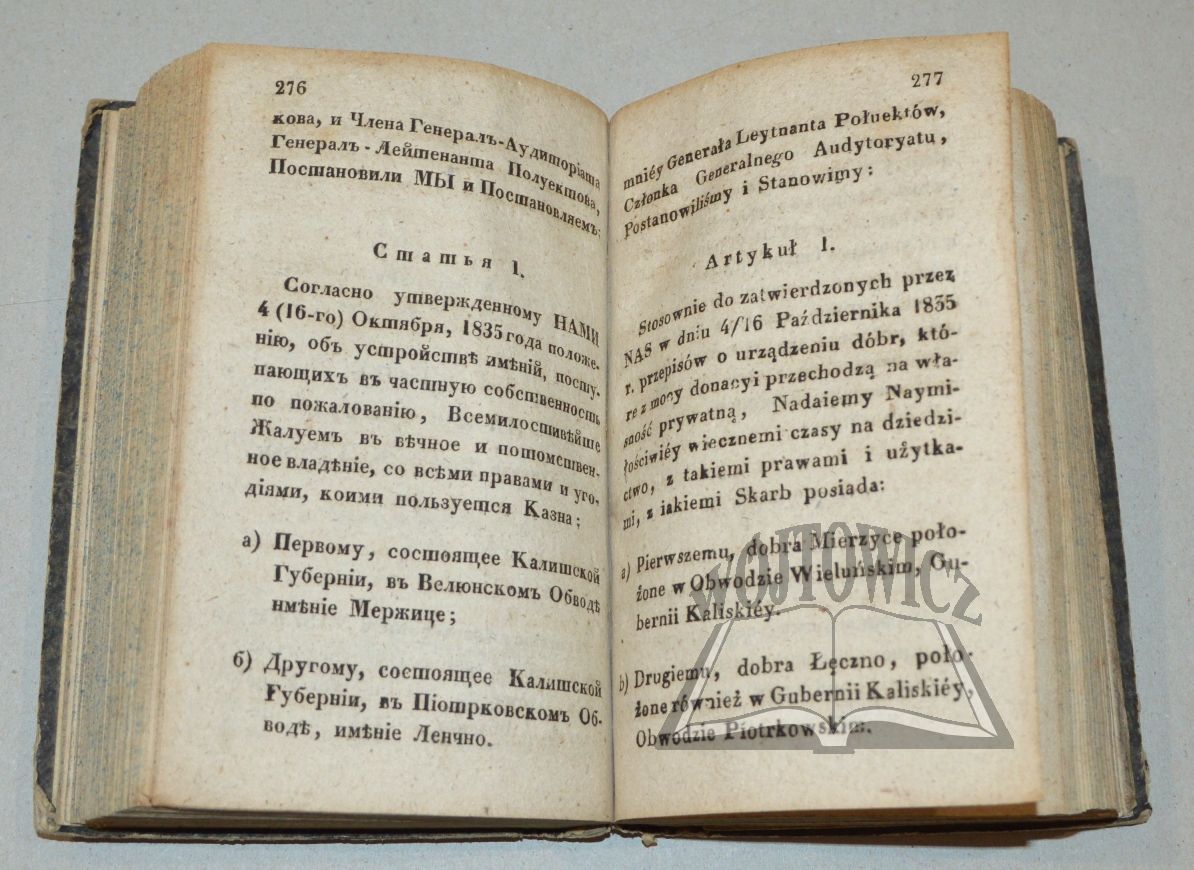 276
кова, и Члена Генералъ-Аудиторіата
Генералъ-Лейтенанта Полуектова,
Постановили МЫ и Постановляемъ:
Статья 1.
Согласно утвержденному НАМИ
4 (16-го) Октября, 1835 года положе-
нію, объ устройствѣ имѣній, посту-
пающихъ въ частную собственность
по пожалованію, Всемилостивѣйше
Жалуемъ въ вѣчное и потомствен-
ное владѣніе, со всѣми правами и уго-
діями, коими пользуется Казна;
а) Первому, состоящее Калишской
Губерніи, въ Велюнскомъ Обводѣ
имѣніе Мержице;
б) Другому, состоящее Калишской
Губерніи, въ Піотрковскомъ Об-
водѣ, имѣніе Ленчно.
277
mniéy Generała Leytnanta Połuektów,
Członka Generalnego Audytoryatu,
Postanowiliśmy i Stanowimy:
Artykuł 1.
Stosownie do zatwierdzonych przez
NAS w dniu 4/16 Października 1835
r. przepisów o urządzeniu dóbr, któ-
re z mocy donacyi przechodzą na wła-
sność prywatną, Nadaiemy Naymi-
łościwiéy wiecznemi czasy na dziedzi-
ctwo, z takiemi prawami i użytka-
mi, z iakiemi Skarb posiada:
a) Pierwszemu, dobra Mierzyce poło-
żone w Obwodzie Wieluńskim, Gu-
bernii Kaliskiéy.
b) Drugiemu, dobra Łęczno, poło-
żone również w Gubernii Kaliskiéy,
Obwodzie Piotrkowskim.
WÓJTOWICZ